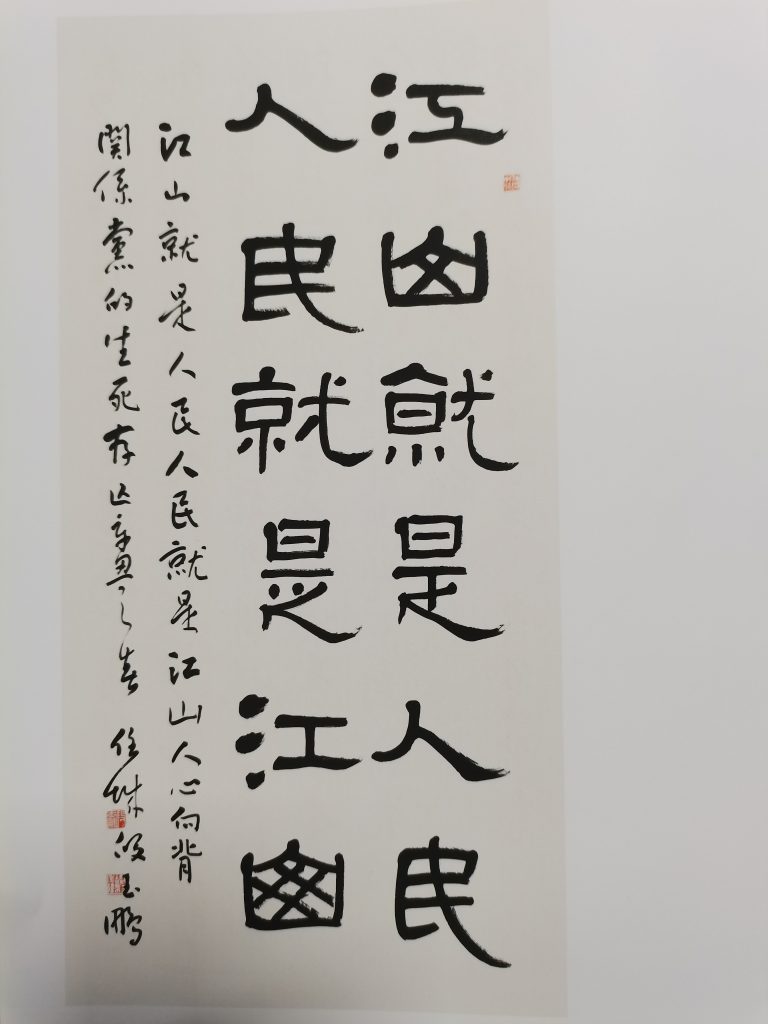 江山就是人民
人民就是江山
江山就是人民人民就是江山人心向背
関係黨的生死存亡辛丑之春 任城段玉鵬